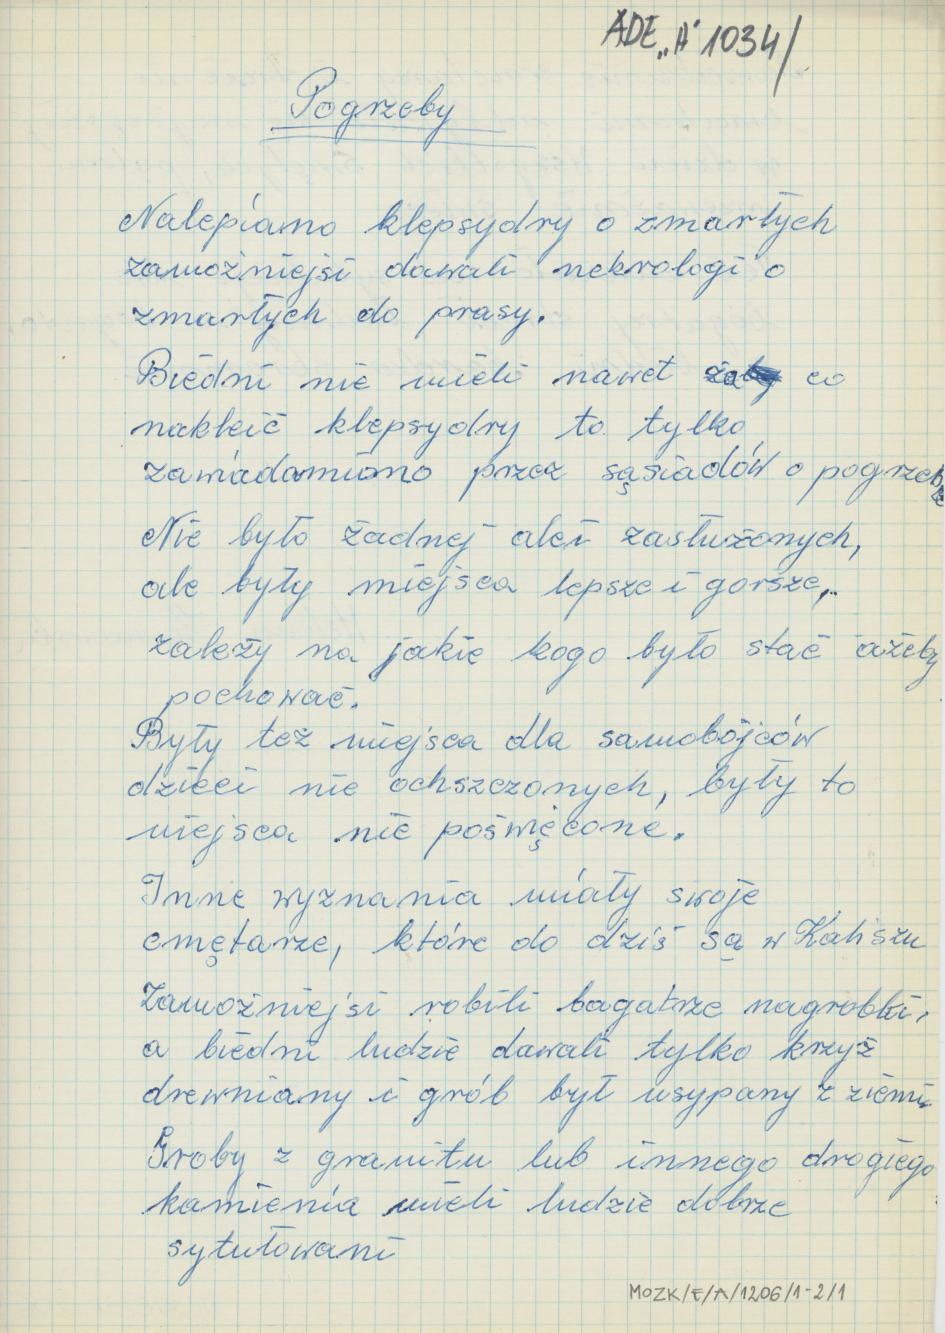 ADE „A" 1034/
Pogrzeby
Nalepiano klepsydry o zmarłych
zamożniejsi dawali nekrologi o
zmarłych do prasy.
Biedni nie mieli nawet co
nakleić klepsydry to tylko
zawiadamiano przez sąsiadów o pogrzebie
Nie było żadnej alei zasłużonych,
ale były miejsca lepsze i gorsze,
zależy na jakie kogo było stać ażeby
pochować.
Były też miejsca dla samobójców
dzieci nie ochszczonych, były to
miejsca nie poświęcone.
Inne wyznania miały swoje
cmętarze, które do dziś są w Kaliszu
Zamożniejsi robili bogatrze nagrobki,
a biedni ludzie dawali tylko krzyż
drewniany i grób był usypany z ziemi.
Groby z granitu lub innego drogiego
kamienia mieli ludzie dobrze
sytułowani
MOZK/E/A/1206/1-2/1